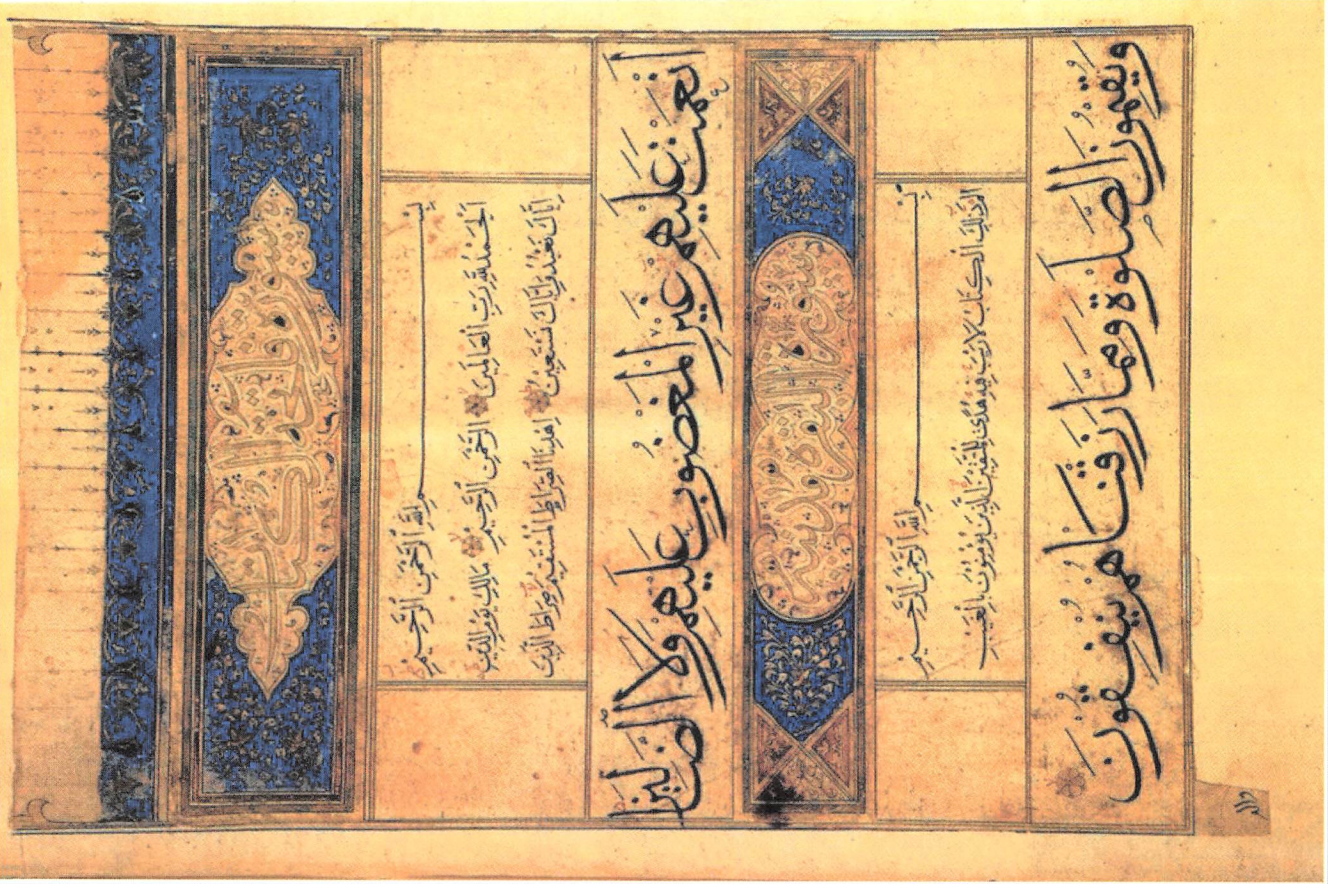 سورة فاتحة الكتاب
بِسْمِ اللَّهِ الرَّحْمٰنِ الرَّحِيمِ
اَلْحَمْدُ لِلَّهِ رَبِّ الْعَالَمِينَ الرَّحْمٰنِ الرَّحِيمِ مَالِكِ يَوْمِ الدِّينِ
اِيَّاكَ نَعْبُدُ وَاِيَّاكَ نَسْتَعِينُ اِهْدِنَا الصِّرَاطَ الْمُسْتَقِيمَ صِرَاطَ الَّذِينَ
اَنْعَمْتَ عَلَيْهِمْ غَيْرِ الْمَغْضُوبِ عَلَيْهِمْ وَلَا الضَّالِّينَ
سورة البقرة مدنية
بِسْمِ اللَّهِ الرَّحْمٰنِ الرَّحِيمِ
الم ذٰلِكَ الْكِتَابُ لَا رَيْبَ فِيهِ هُدًى لِلْمُتَّقِينَ الَّذِينَ يُؤْمِنُونَ بِالْغَيْبِ
وَيُقِيمُونَ الصَّلٰوةَ وَمِمَّا رَزَقْنَاهُمْ يُنْفِقُونَ